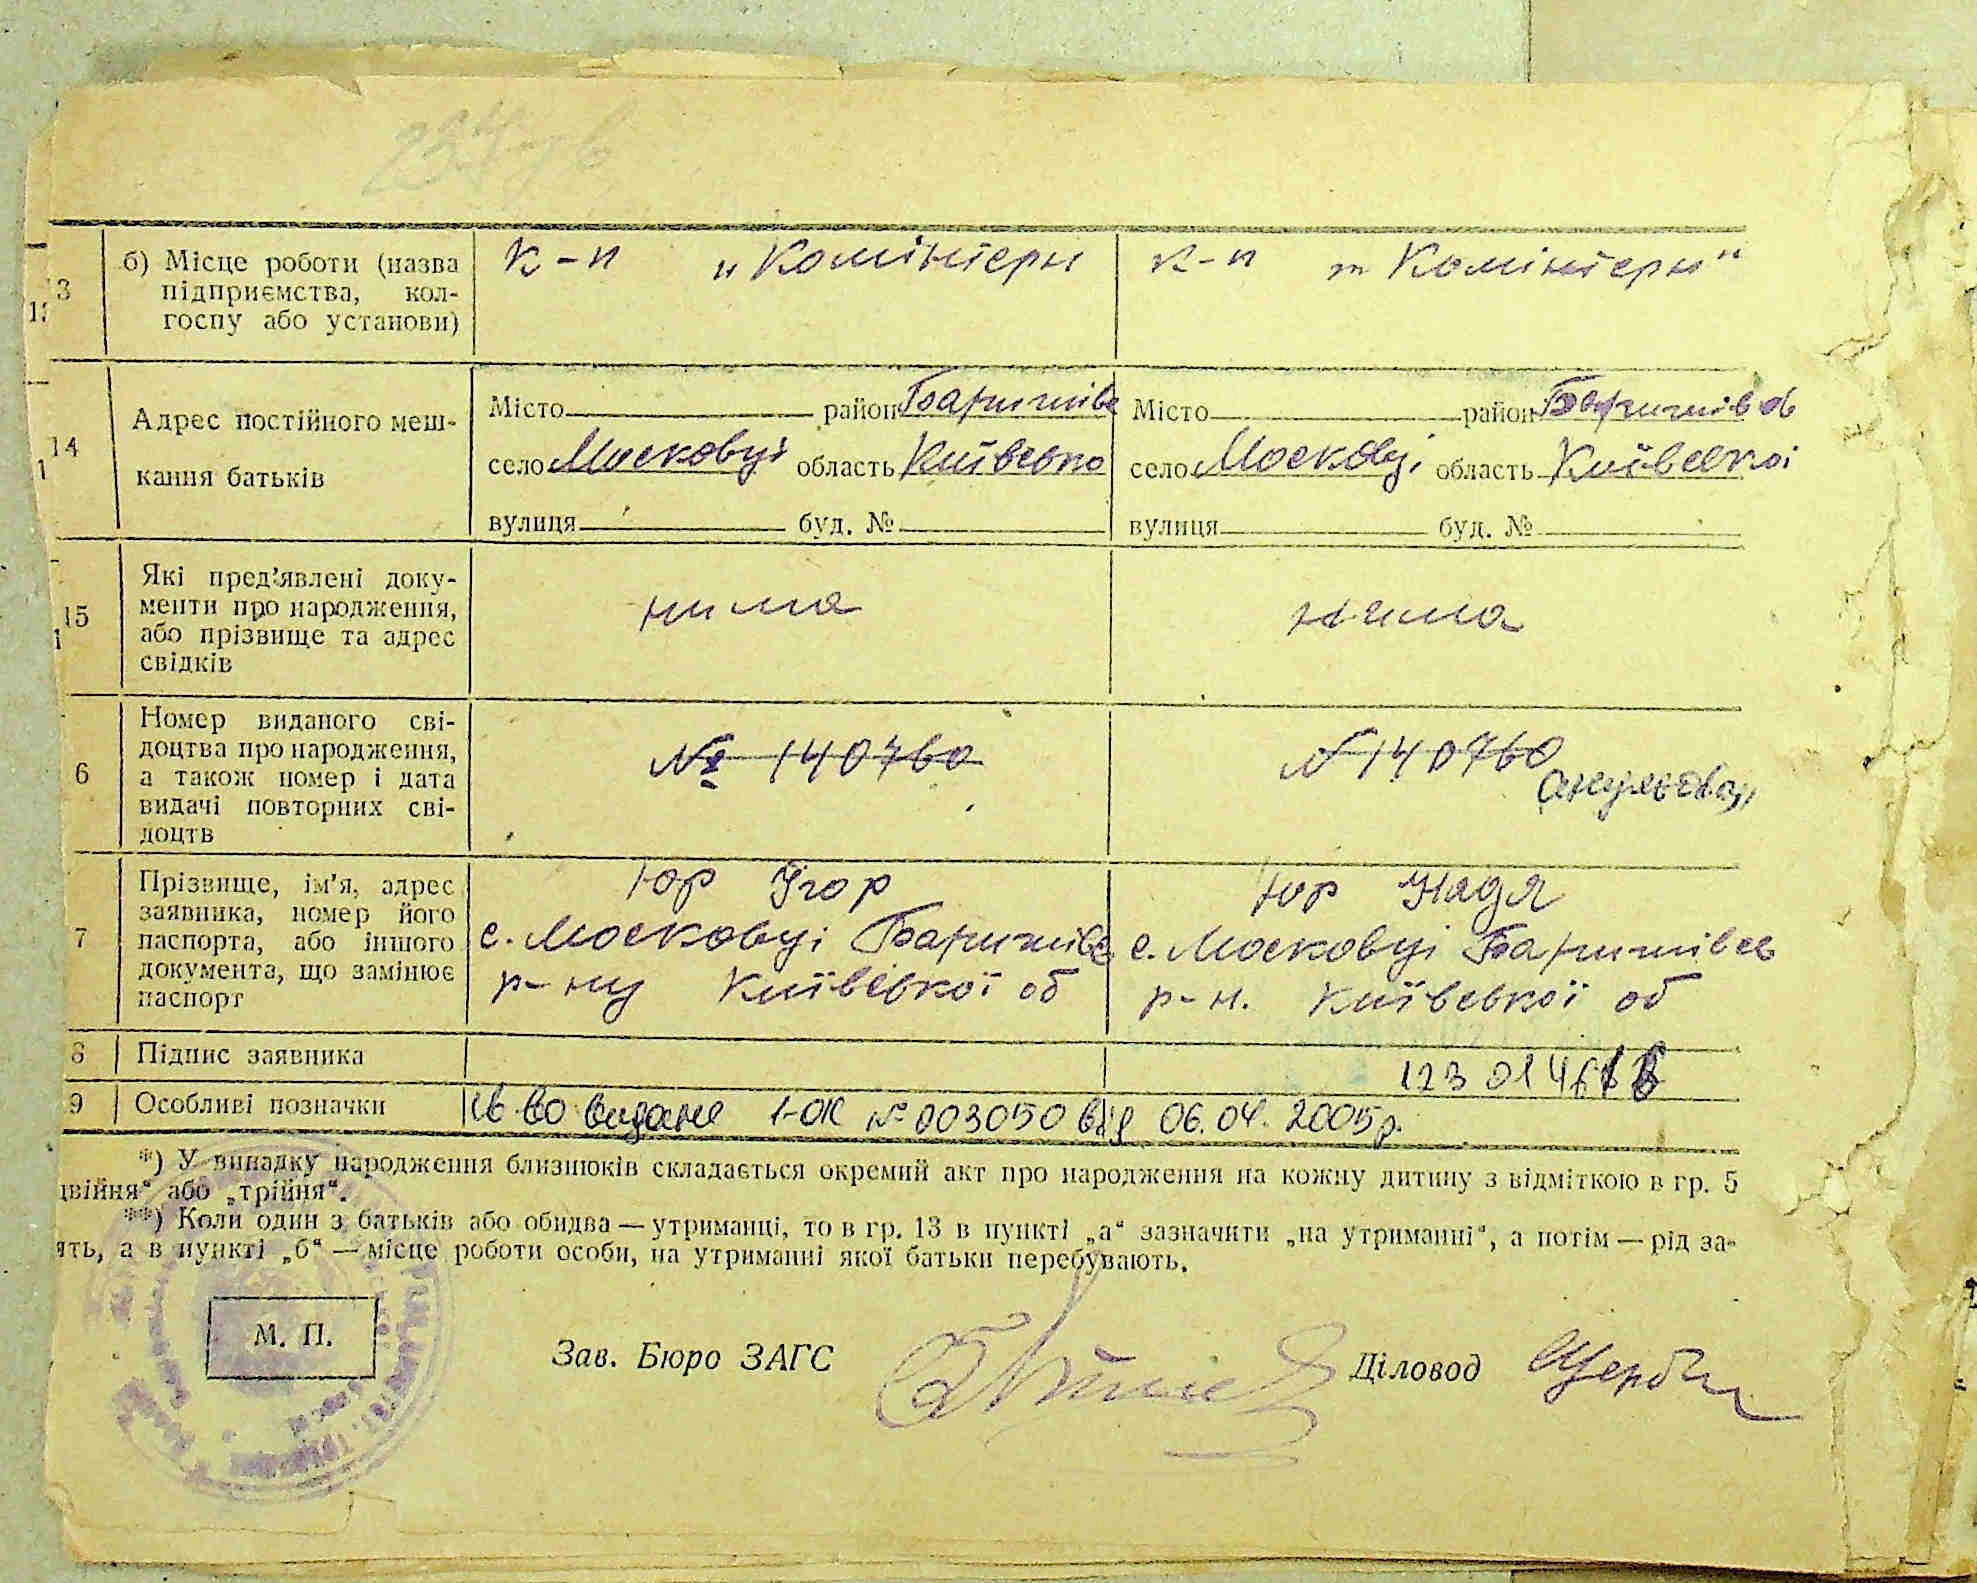 13
б) Місце роботи (назва
підприємства, кол-
госпу або установи)
к-п „Комінтерн
к-п „Комінтерн"
14
Адрес постійного меш-
кання батьків
Місто район Баришівс
село Московці область Київсько
вулиця буд. №
Місто район Баришівсь
село Московці область Київської
вулиця буд. №
15
Які пред'явлені доку-
менти про народження,
або прізвище та адрес
свідків
нима
нима
6
Номер виданого сві-
доцтва про народження,
а також номер і дата
видачі повторних сві-
доцтв
№ 140760
№ 140760
анульован
7
Прізвище, ім'я, адрес
заявника, номер його
паспорта, або іншого
документа, що замінює
паспорт
Юр Ігор
с. Московці Баришівс
р-ну Київської об
Юр Надя
с. Московці Баришівсь
р-н. Київської об
8
Підпис заявника
9
Особливі позначки
св-во видане 1-ОК № 003050 від 06.04.2005р.
*) У випадку народження близнюків складається окремий акт про народження на кожну дитину з відміткою в гр. 5
двійня" або „трійня".
**) Коли один з батьків або обидва — утриманці, то в гр. 13 в пункті „а" зазначити „на утриманні", а потім — рід за-
ять, а в пункті „б" — місце роботи особи, на утриманні якої батьки перебувають.
М. П.
Зав. Бюро ЗАГС
Діловод